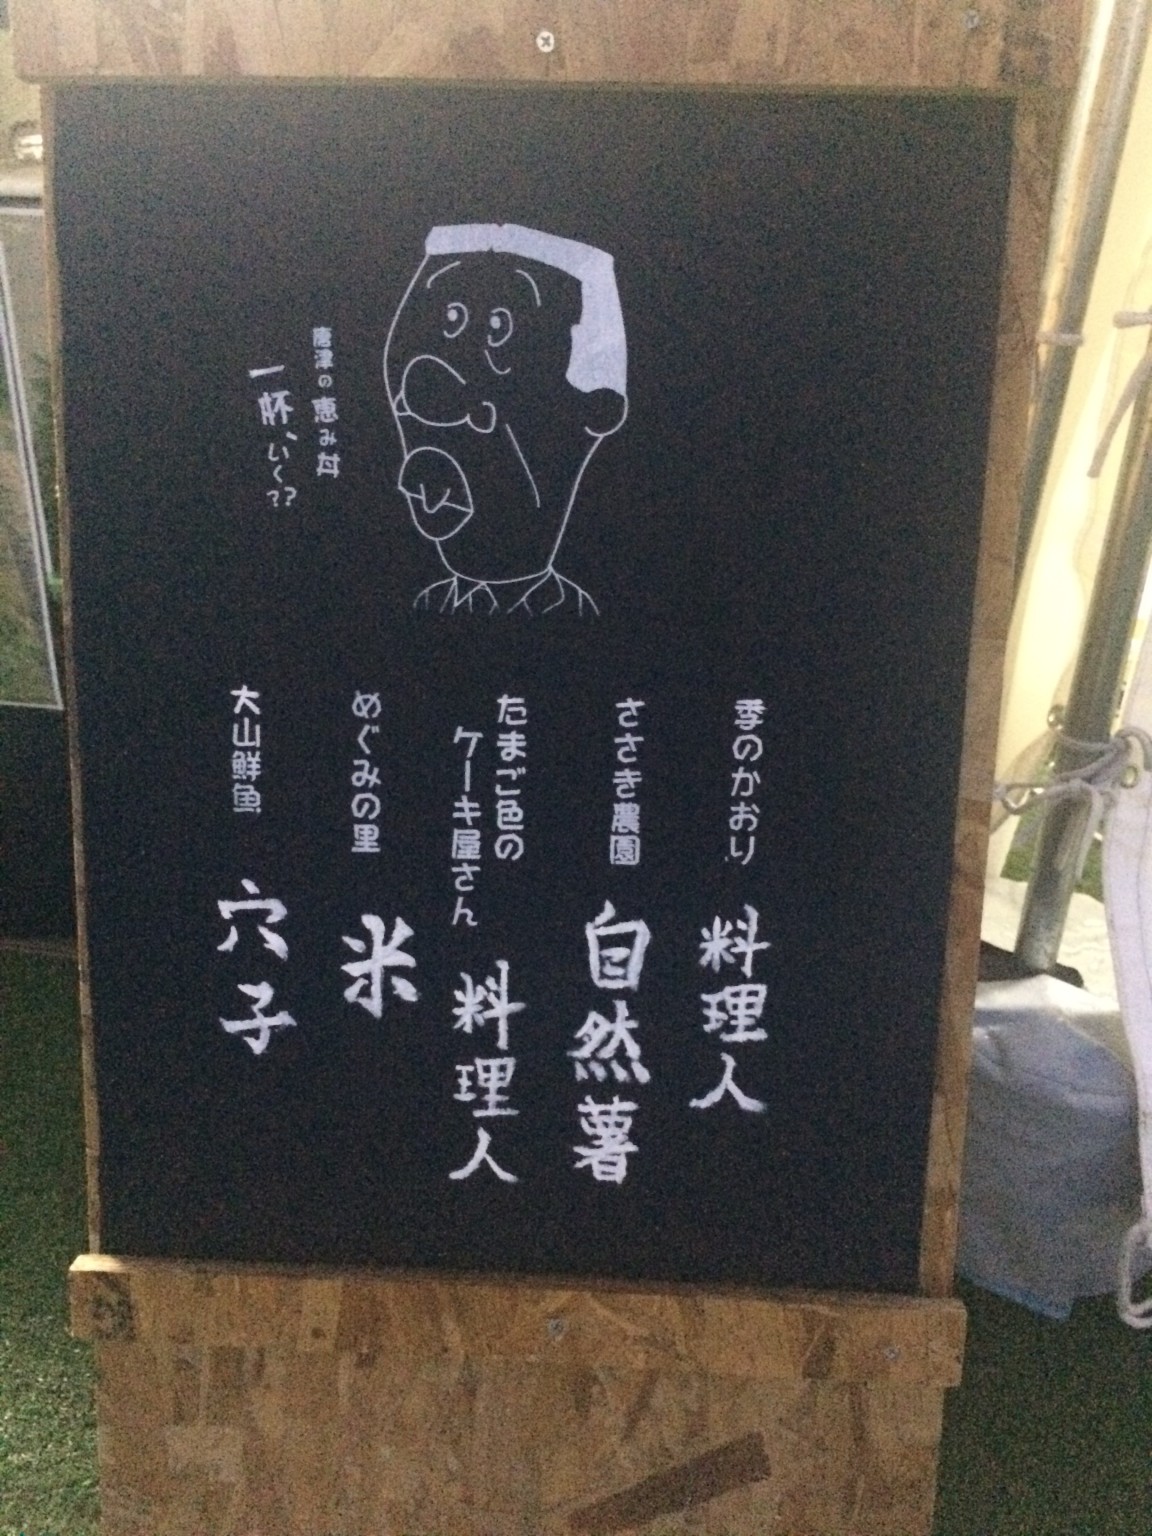 唐津の恵み丼
一杯、いく??
季のかおり 料理人
ささき農園 自然薯
たまご色の
ケーキ屋さん 料理人
めぐみの里 米
大山鮮魚 穴子